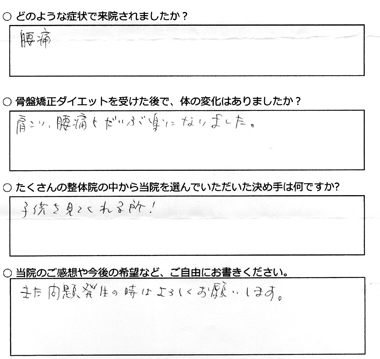 ○ どのような症状で来院されましたか？
腰痛
○ 骨盤矯正ダイエットを受けた後で、体の変化はありましたか？
肩こり、腰痛もだいぶ楽になりました。
○ たくさんの整体院の中から当院を選んでいただいた決め手は何ですか?
子供を見てくれる所！
○ 当院のご感想や今後の希望など、ご自由にお書きください。
また問題発生の時はよろしくお願いします。